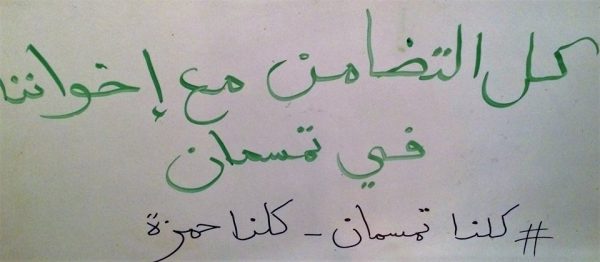 كل التضامن مع إخواننا
في تمسمان
# كلنا تمسمان - كلنا حمزة